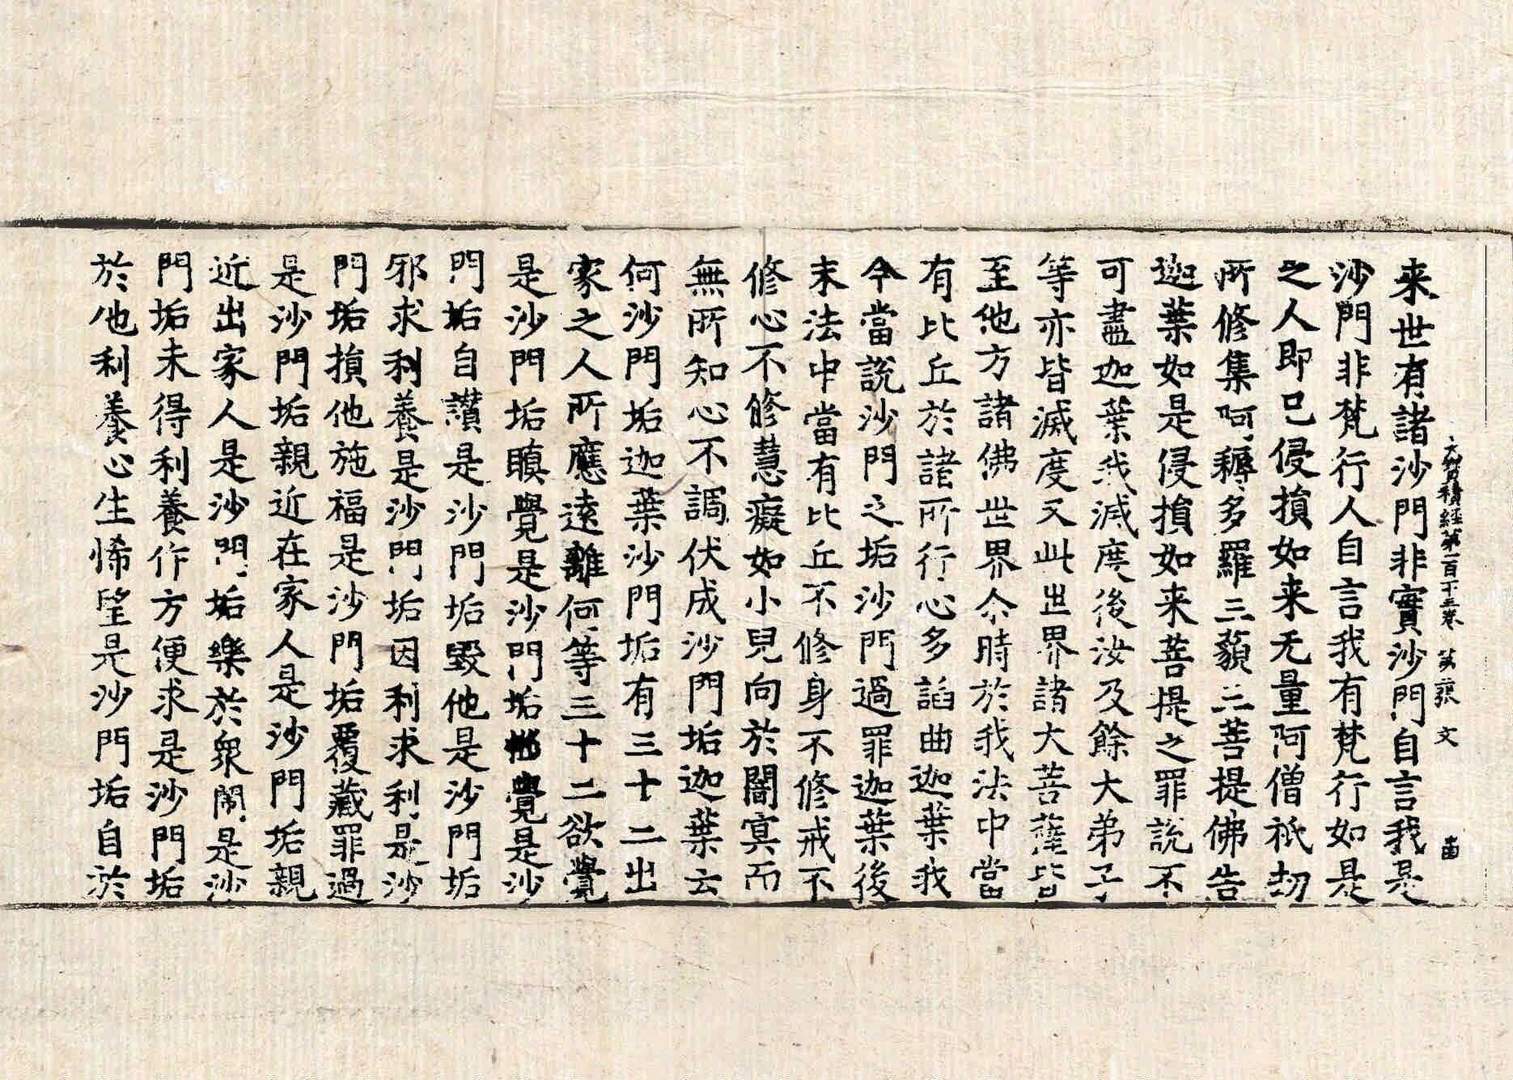 来世有諸沙門非實沙門自言我是
沙門非梵行人自言我有梵行如是
之人即已侵損如来无量阿僧祇劫
所修集阿耨多羅三藐三菩提佛告
迦葉如是侵損如来菩提之罪說不
可盡迦葉我滅度後汝及餘大弟子
等亦皆滅度又此世界諸大菩薩皆
至他方諸佛世界尒時於我法中當
有比丘於諸所行心多諂曲迦葉我
今當說沙門之垢沙門過罪迦葉後
末法中當有比丘不修身不修戒不
修心不修慧癡如小兒向於闇冥而
無所知心不調伏成沙門垢迦葉云
何沙門垢迦葉沙門垢有三十二出
家之人所應遠離何等三十二欲覺
是沙門垢瞋覺是沙門垢惱覺是沙
門垢自讃是沙門垢毀他是沙門垢
邪求利養是沙門垢因利求利是沙
門垢損他施福是沙門垢覆藏罪過
是沙門垢親近在家人是沙門垢親
近出家人是沙門垢樂於衆閙是沙
門垢未得利養作方便求是沙門垢
於他利養心生悕望是沙門垢自於